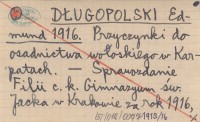 DŁUGOPOLSKI Ed-
mund 1916. Przyczynki do
osadnictwa wołoskiego w Kar-
patach. — Sprawozdanie
Filii c. k. Gimnazyum św.
Jacka w Krakowie za rok 1916,
1918/16